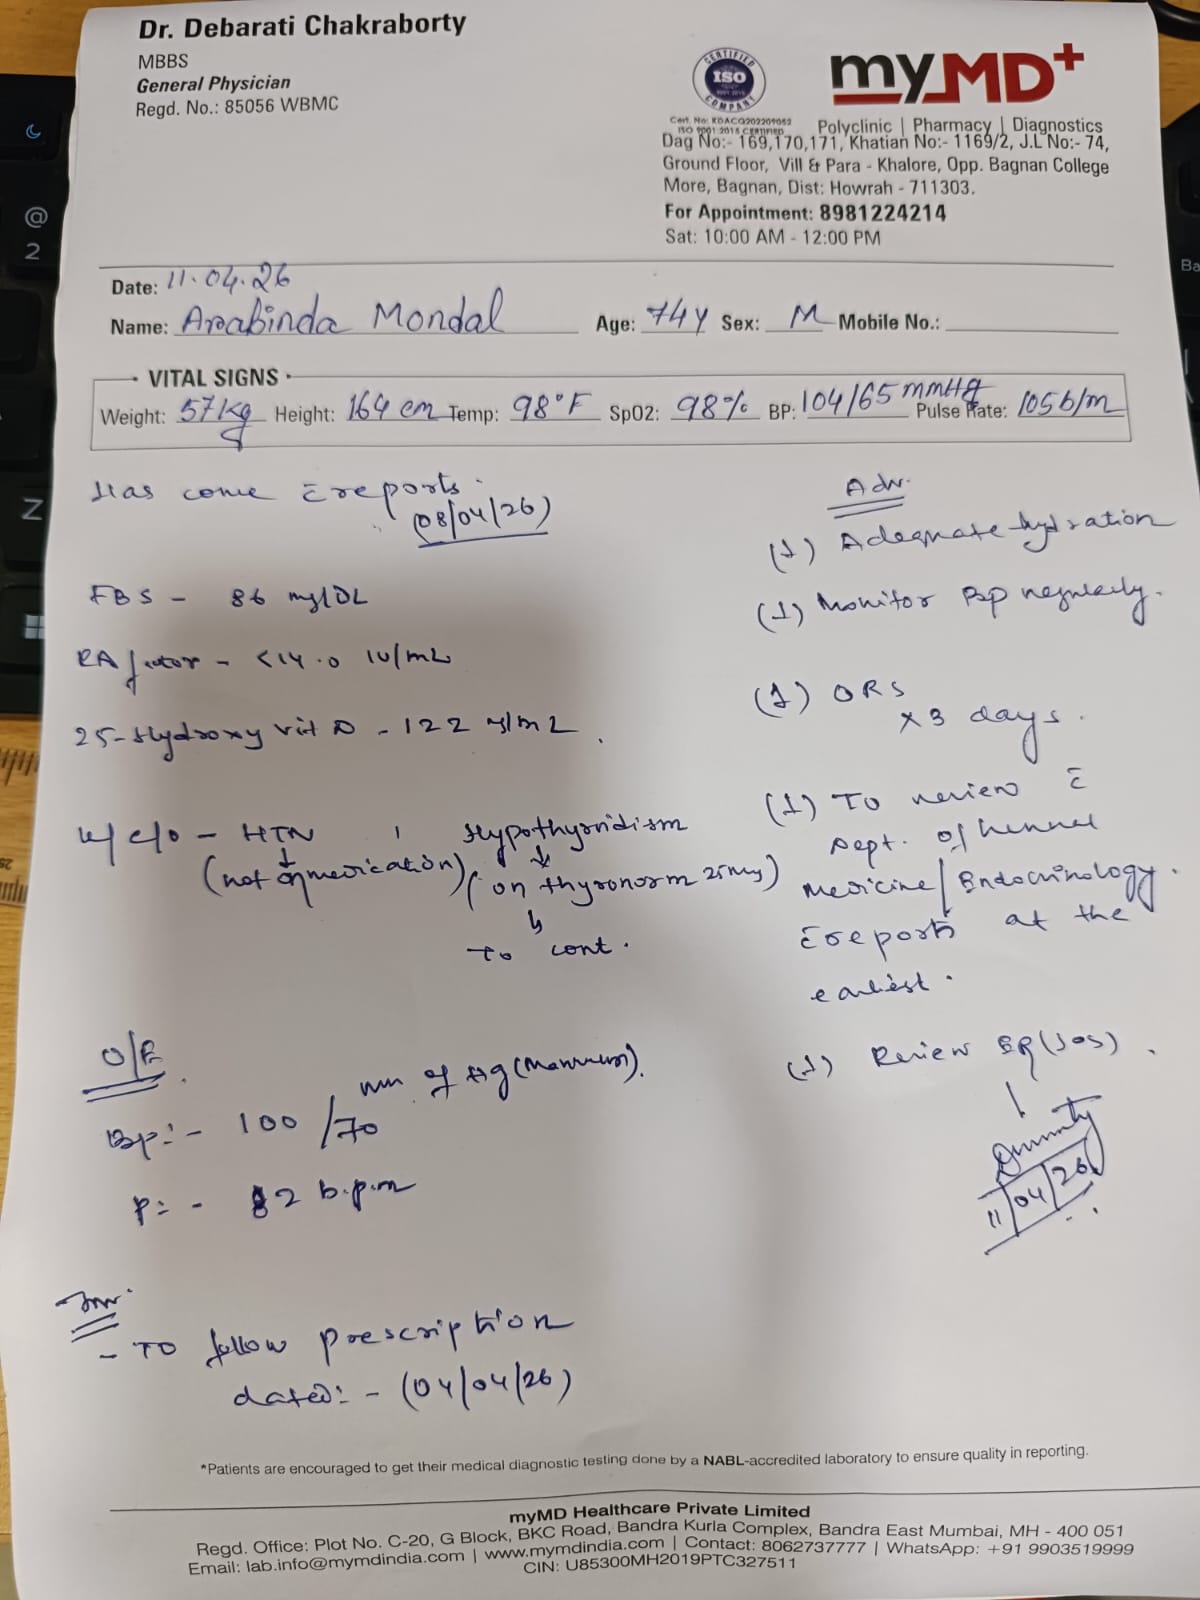 Dr. Debarati Chakraborty
MBBS
General Physician
Regd. No.: 85056 WBMC
CERTIFIED
ISO
COMPANY
myMD+
Cert. No: KDACQ202209052
ISO 9001:2015 CERTIFIED
Polyclinic | Pharmacy | Diagnostics
Dag No:- 169,170,171, Khatian No:- 1169/2, J.L No:- 74,
Ground Floor, Vill & Para - Khalore, Opp. Bagnan College
More, Bagnan, Dist: Howrah - 711303.
For Appointment: 8981224214
Sat: 10:00 AM - 12:00 PM
Date: 11.04.26
Name: Arabinda Mondal Age: 74Y Sex: M Mobile No.:
VITAL SIGNS
Weight: 57kg Height: 164 cm Temp: 98°F SpO2: 98% BP: 104/65 mmHg Pulse Rate: 105b/m
Has come c̄ reports.
(08/04/26)
FBS - 86 mg/DL
RA factor - <14.0 IU/mL
25-Hydroxy vit D - 122 /mL.
K/c/o - HTN , Hypothyroidism
(not on medication) (on thyronorm 25mcg)
To cont.
O/E
mm of Hg (Manual).
Bp:- 100/70
P:- 82 b.p.m
Inv.
- To follow prescription
dated:- (04/04/26)
Adv.
(1) Adequate hydration
(1) Monitor Bp regularly.
(1) ORS
x 3 days.
(1) To review c̄
Dept. of
Medicine/Endocrinology.
c̄ reports at the
earliest.
(1) Review (SOS).
11/04/26
*Patients are encouraged to get their medical diagnostic testing done by a NABL-accredited laboratory to ensure quality in reporting.
myMD Healthcare Private Limited
Regd. Office: Plot No. C-20, G Block, BKC Road, Bandra Kurla Complex, Bandra East Mumbai, MH - 400 051
Email: lab.info@mymdindia.com | www.mymdindia.com | Contact: 8062737777 | WhatsApp: +91 9903519999
CIN: U85300MH2019PTC327511